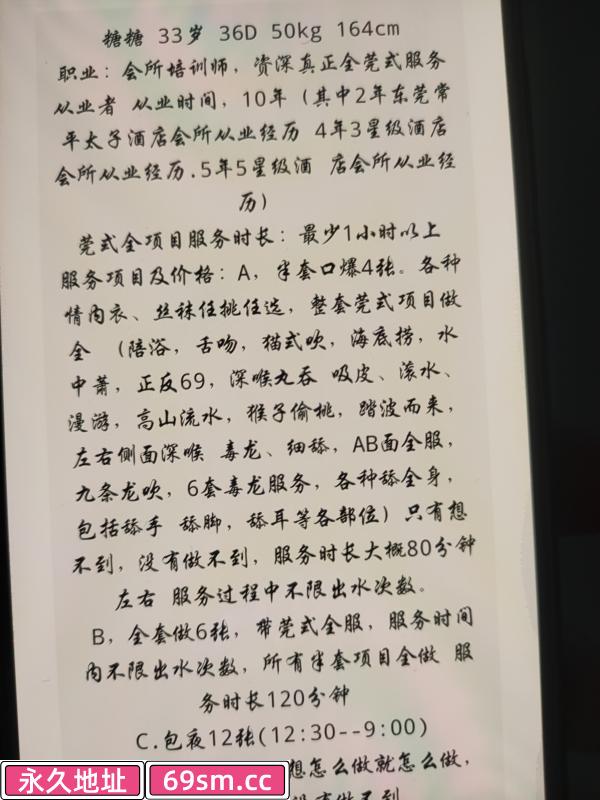 糖糖 33岁 36D 50kg 164cm
职业：会所培训师，资深真正全莞式服务
从业者 从业时间，10年（其中2年东莞常
平太子酒店会所从业经历 4年3星级酒店
会所从业经历.5年5星级酒 店会所从业经
历)
莞式全项目服务时长：最少1小时以上
服务项目及价格：A，半套口爆4张。各种
情内衣、丝袜任挑任选，整套莞式项目做
全 （陪浴，舌吻，猫式吹，海底捞，水
中萧，正反69，深喉九吞 吸皮、滚水、
漫游，高山流水，猴子偷桃，踏波而来，
左右侧面深喉 毒龙、细舔，AB面全服，
九条龙吹，6套毒龙服务，各种舔全身，
包括舔手 舔脚，舔耳等各部位）只有想
不到，没有做不到，服务时长大概80分钟
左右 服务过程中不限出水次数。
B，全套做6张，带莞式全服，服务时间
内不限出水次数，所有半套项目全做 服
务时长120分钟
C.包夜12张(12:30--9:00)
想怎么做就怎么做，
没有做不到
永久地址 69sm.cc